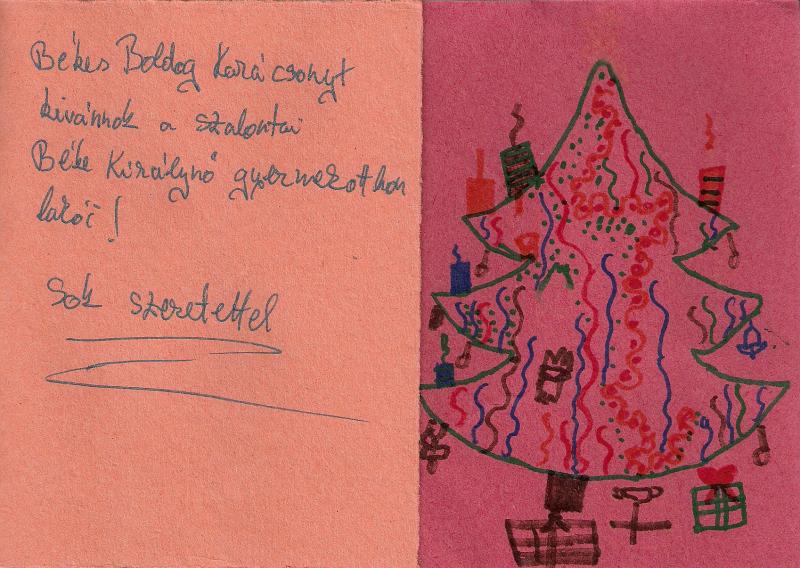 Békes Boldog Karácsonyt
kivánnok a szalontai
Béke Királynő gyermekotthon
lakói!
Sok szeretettel